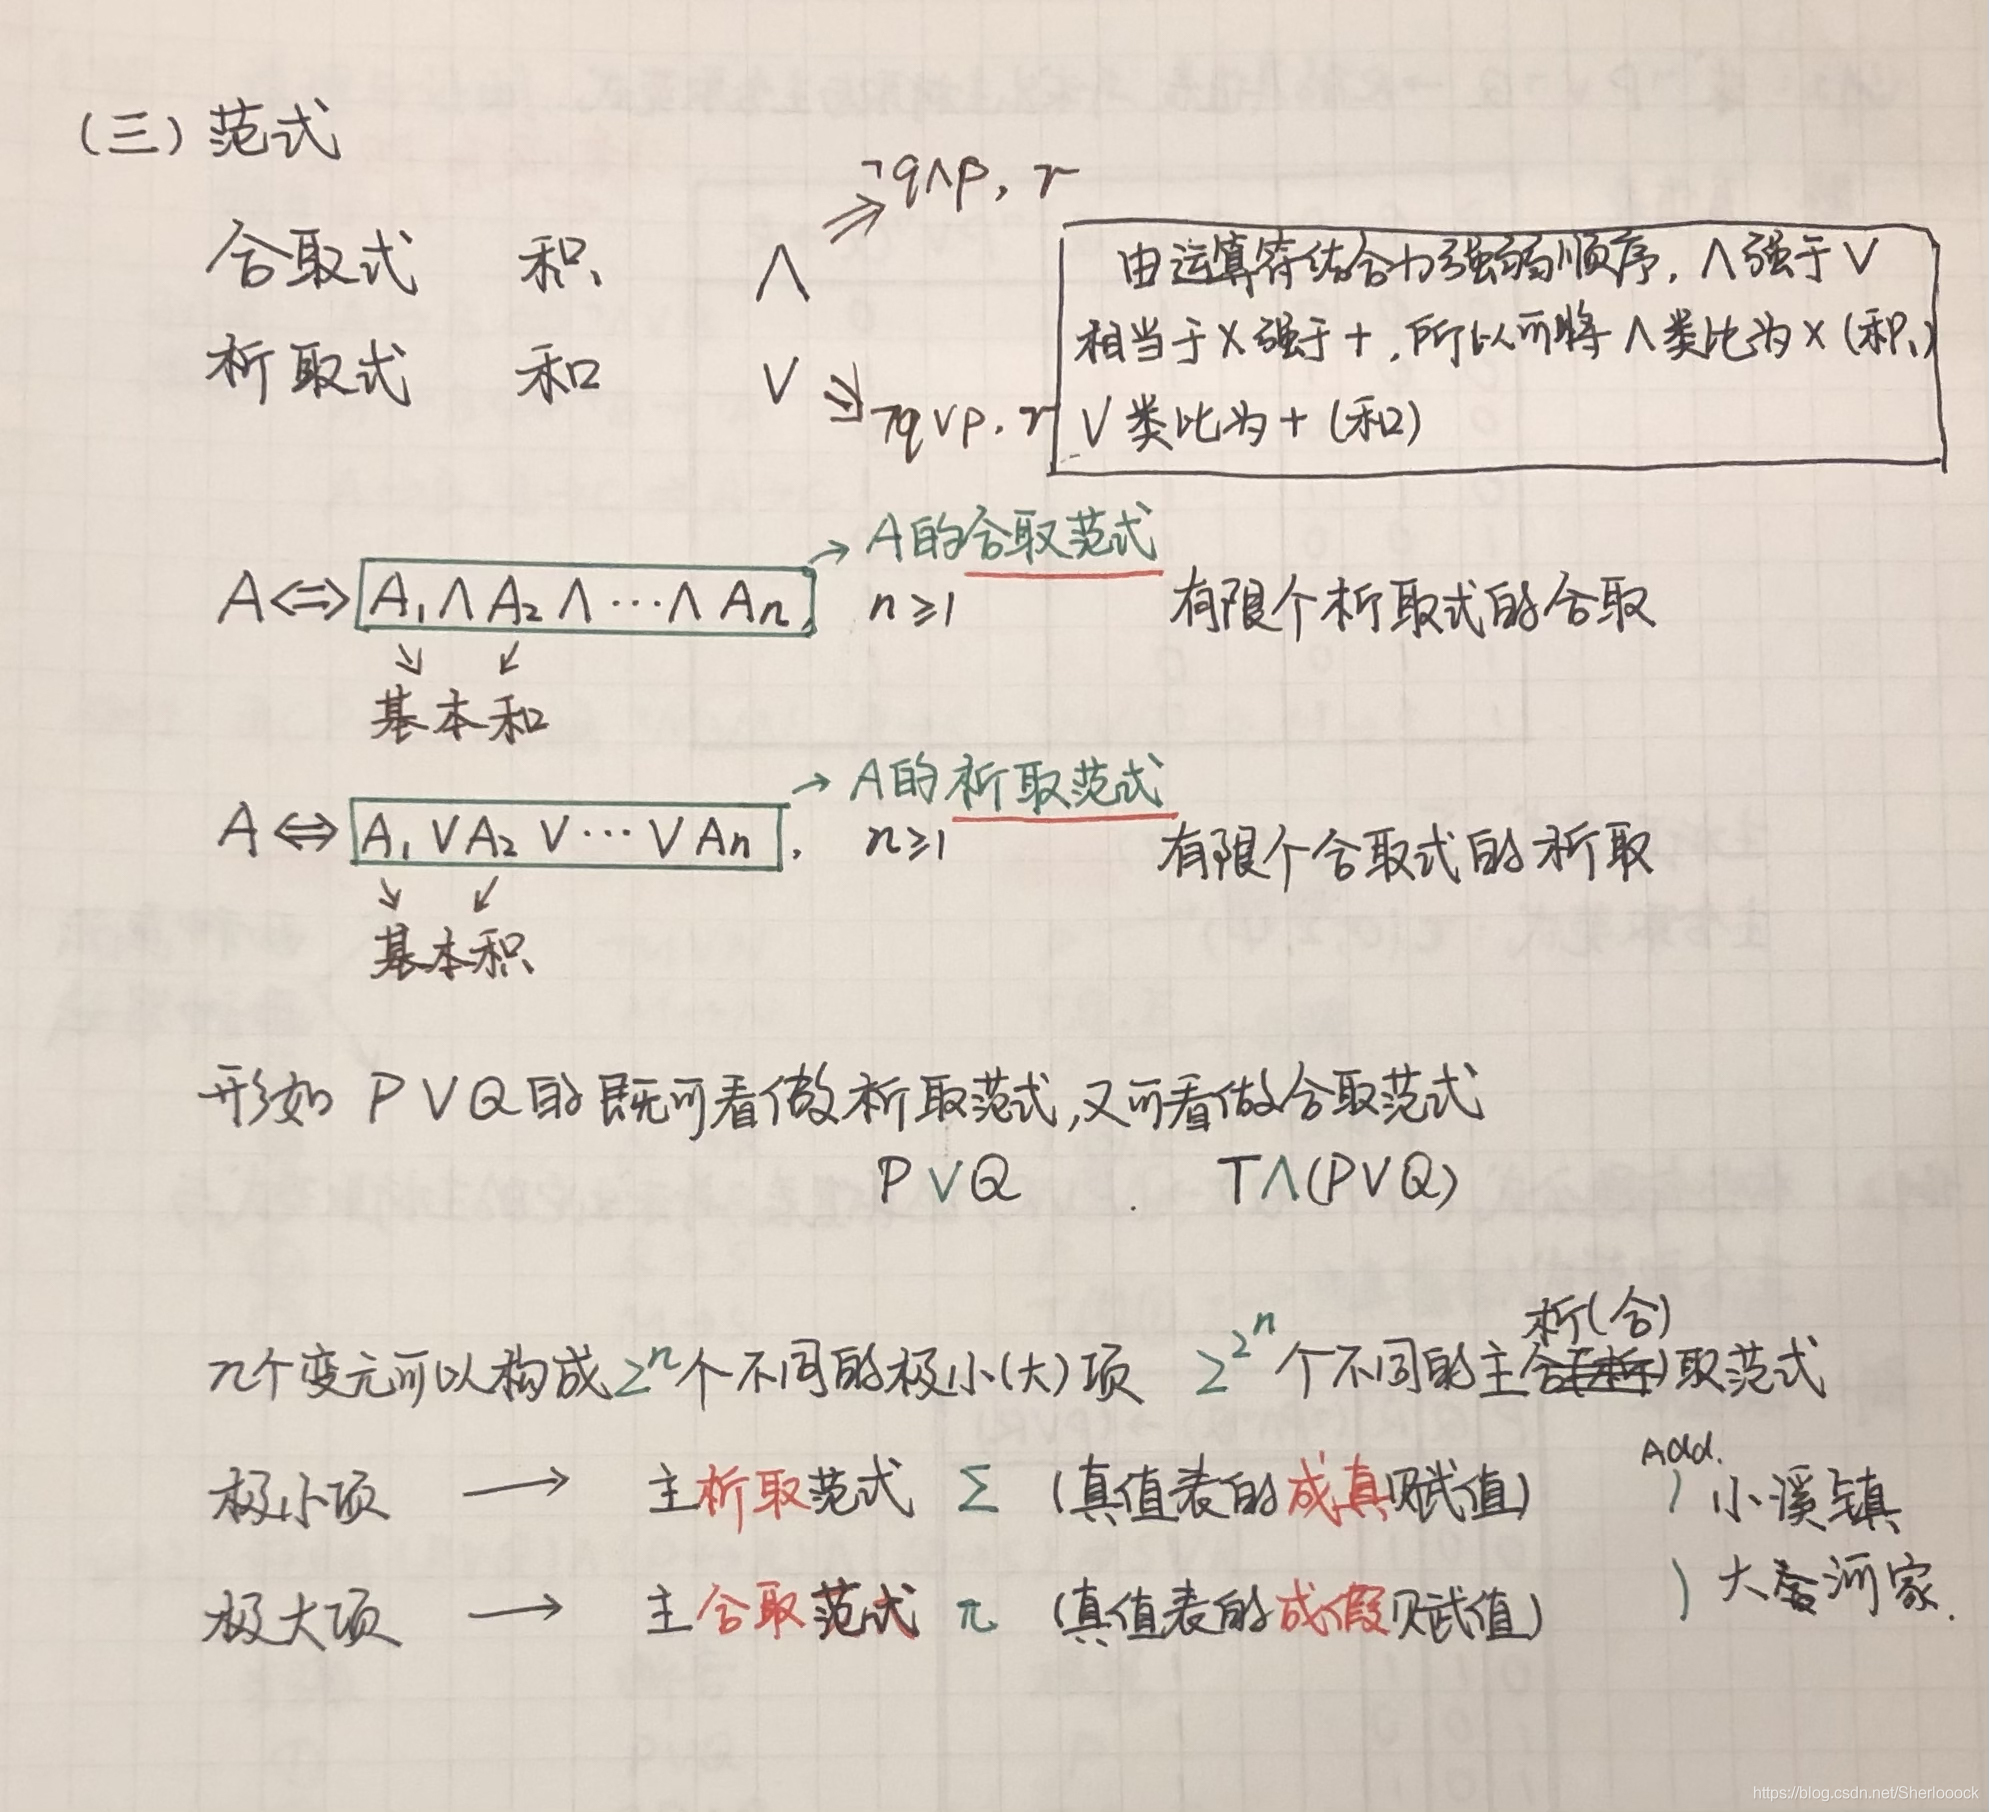 （三）范式
¬q∧p, r
合取式 积 ∧
析取式 和 ∨
¬q∨p, r
由运算符结合力强弱顺序，∧强于∨
相当于×强于+，所以可将∧类比为×（积）
∨类比为+（和）
A的合取范式
A⇔A₁∧A₂∧…∧Aₙ, n≥1 有限个析取式的合取
基本和
A的析取范式
A⇔A₁∨A₂∨…∨Aₙ, n≥1 有限个合取式的析取
基本积
形如 P∨Q的既可看做析取范式,又可看做合取范式
P∨Q T∧(P∨Q)
n个变元可以构成2ⁿ个不同的极小(大)项 2^2^n个不同的主析(合)取范式
Add.
极小项 → 主析取范式 Σ (真值表的成真赋值) ) 小溪镇
极大项 → 主合取范式 π (真值表的成假赋值) ) 大河家.
https://blog.csdn.net/Sherlooock